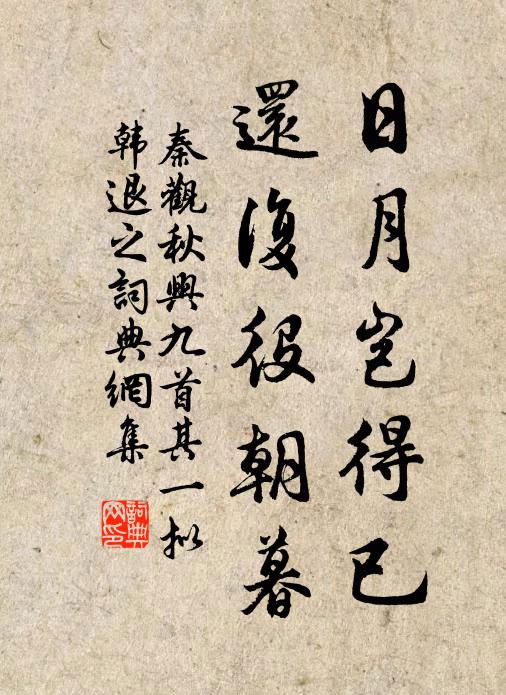 日月岂得已
還復役朝暮
秦觀秋興九首其一拟
韩退之詞典網集
詞典網印